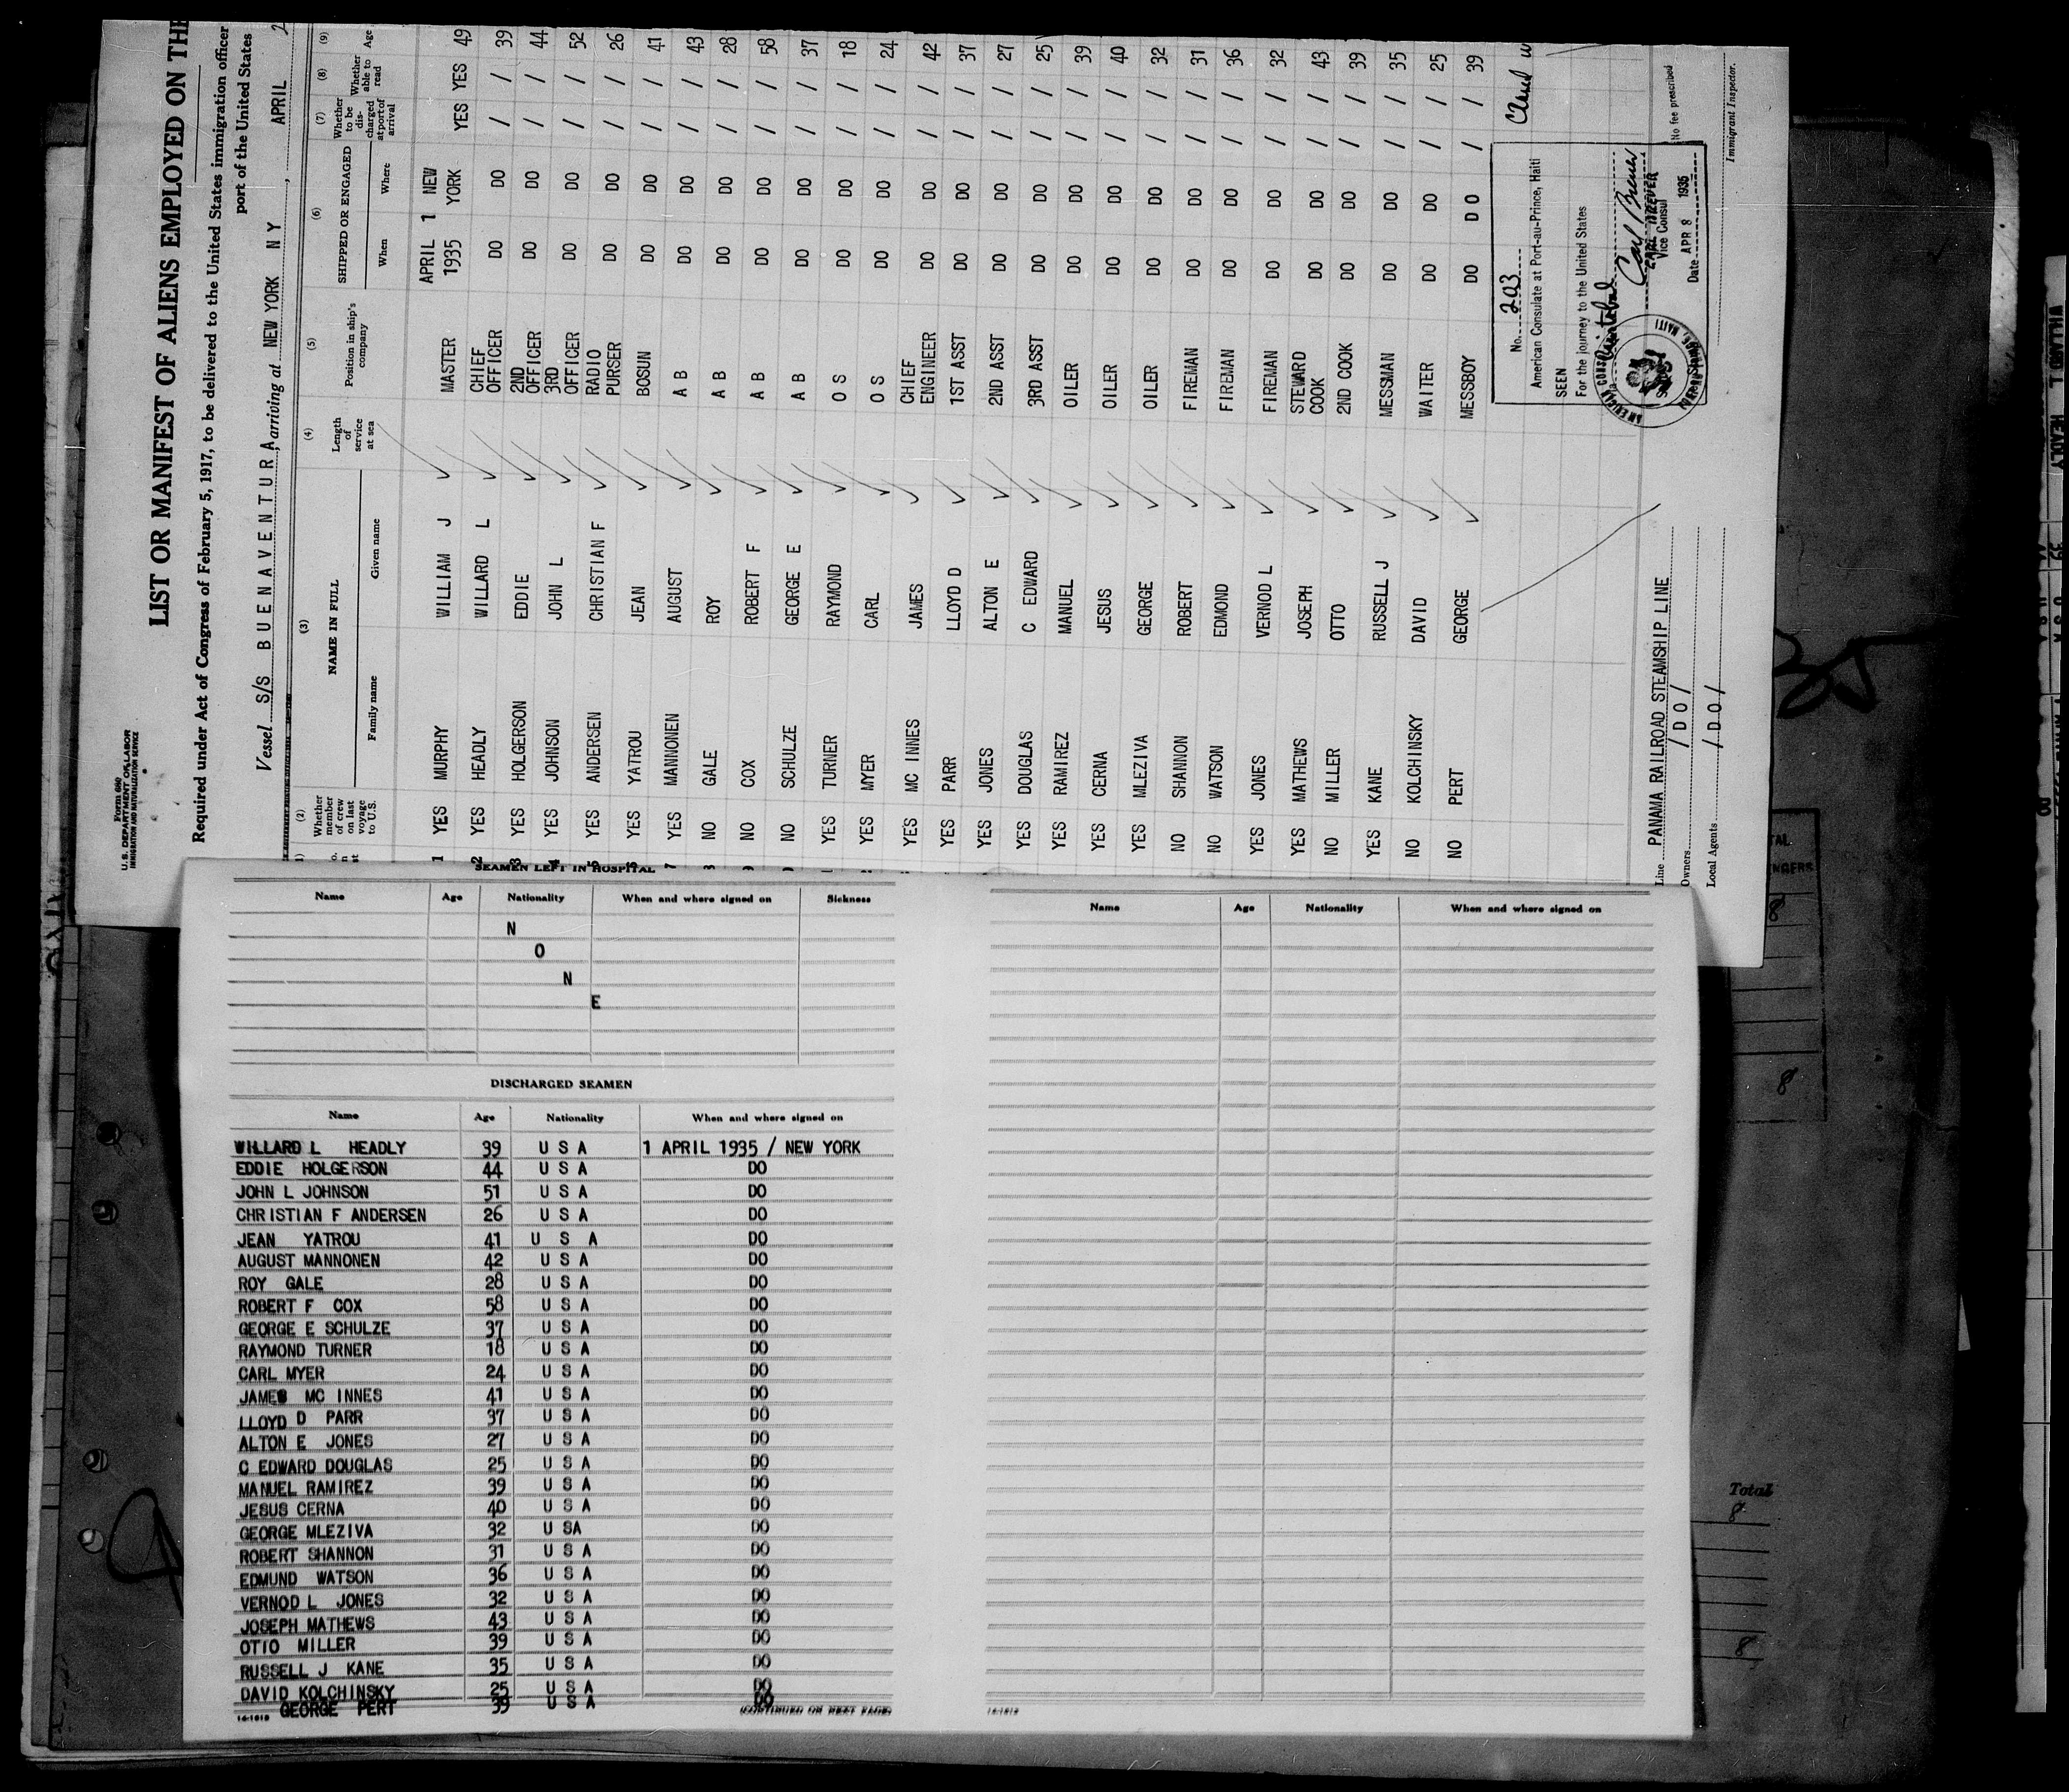 Form 680
U.S. DEPARTMENT OF LABOR
IMMIGRATION AND NATURALIZATION SERVICE
LIST OR MANIFEST OF ALIENS EMPLOYED ON THE
Required under Act of Congress of February 5, 1917, to be delivered to the United States immigration officer
port of the United States
Vessel S/S BUENAVENTURA, arriving at NEW YORK N Y, APRIL 2
(2) (3) (4) (5) (6) (7) (8) (9)
Whether member of crew on last voyage to U.S. NAME IN FULL Family name Given name Length of service at sea Position in ship's company SHIPPED OR ENGAGED When Where Whether to be discharged at port of arrival Whether able to read Age
1 YES MURPHY WILLIAM J MASTER APRIL 1 1935 NEW YORK YES YES 49
2 YES HEADLY WILLARD L CHIEF OFFICER DO DO / / 39
3 YES HOLGERSON EDDIE 2ND OFFICER DO DO / / 44
4 YES JOHNSON JOHN L 3RD OFFICER DO DO / / 52
5 YES ANDERSEN CHRISTIAN F RADIO PURSER DO DO / / 26
6 YES YATROU JEAN BOSUN DO DO / / 41
7 YES MANNONEN AUGUST A B DO DO / / 43
8 NO GALE ROY A B DO DO / / 28
9 NO COX ROBERT F A B DO DO / / 58
NO SCHULZE GEORGE E A B DO DO / / 37
YES TURNER RAYMOND O S DO DO / / 18
YES MYER CARL O S DO DO / / 24
YES MC INNES JAMES CHIEF ENGINEER DO DO / / 42
YES PARR LLOYD D 1ST ASST DO DO / / 37
YES JONES ALTON E 2ND ASST DO DO / / 27
YES DOUGLAS C EDWARD 3RD ASST DO DO / / 25
YES RAMIREZ MANUEL OILER DO DO / / 39
YES CERNA JESUS OILER DO DO / / 40
YES MLEZIVA GEORGE OILER DO DO / / 32
NO SHANNON ROBERT FIREMAN DO DO / / 31
NO WATSON EDMOND FIREMAN DO DO / / 36
YES JONES VERNOD L FIREMAN DO DO / / 32
YES MATHEWS JOSEPH STEWARD COOK DO DO / / 43
NO MILLER OTTO 2ND COOK DO DO / / 39
YES KANE RUSSELL J MESSMAN DO DO / / 35
NO KOLCHINSKY DAVID WAITER DO DO / / 25
NO PERT GEORGE MESSBOY DO D O / / 39
No. 203
American Consulate at Port-au-Prince, Haiti
SEEN
For the journey to the United States
Carl Breuer
Vice Consul
Date APR 8 1935
No fee prescribed
Immigrant Inspector.
Line PANAMA RAILROAD STEAMSHIP LINE
Owners / D O /
Local Agents / D O /
SEAMEN LEFT IN HOSPITAL
Name Age Nationality When and where signed on Sickness
N
O
N
E
DISCHARGED SEAMEN
Name Age Nationality When and where signed on
WILLARD L HEADLY 39 U S A 1 APRIL 1935 / NEW YORK
EDDIE HOLGERSON 44 U S A DO
JOHN L JOHNSON 51 U S A DO
CHRISTIAN F ANDERSEN 26 U S A DO
JEAN YATROU 41 U S A DO
AUGUST MANNONEN 42 U S A DO
ROY GALE 28 U S A DO
ROBERT F COX 58 U S A DO
GEORGE E SCHULZE 37 U S A DO
RAYMOND TURNER 18 U S A DO
CARL MYER 24 U S A DO
JAMES MC INNES 41 U S A DO
LLOYD D PARR 37 U S A DO
ALTON E JONES 27 U S A DO
C EDWARD DOUGLAS 25 U S A DO
MANUEL RAMIREZ 39 U S A DO
JESUS CERNA 40 U S A DO
GEORGE MLEZIVA 32 U SA DO
ROBERT SHANNON 31 U S A DO
EDMUND WATSON 36 U S A DO
VERNOD L JONES 32 U S A DO
JOSEPH MATHEWS 43 U S A DO
OTTO MILLER 39 U S A DO
RUSSELL J KANE 35 U S A DO
DAVID KOLCHINSKY 25 U S A DO
GEORGE PERT 39 U S A DO
16-1819 (CONTINUED ON NEXT PAGE)
Name Age Nationality When and where signed on
16-1819
8
8
Total
8
8